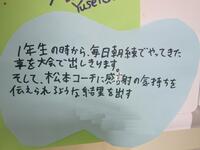 Yusei
1年生の時から、毎日朝練でやってきた
事を大会で出しきります。
そして、松本コーチに感謝の気持ちを
伝えられるような結果を出す